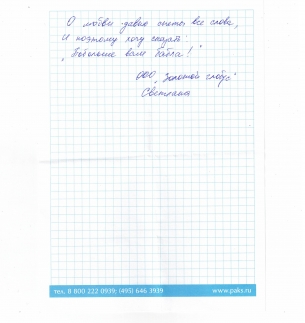 О любви давно спеты все слова,
И поэтому хочу сказать:
"Побольше вам бабла!"
ООО "Золотой глобус"
Светлана
тел. 8 800 222 0939; (495) 646 3939 www.paks.ru